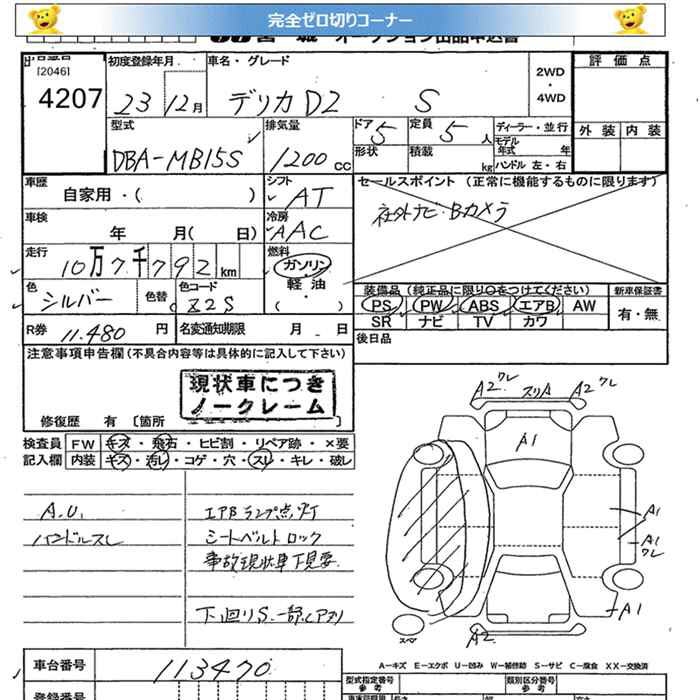 完全ゼロ切りコーナー
宮城オークション出品申込書
[2046]
4207
初度登録年月
23 12月
車名・グレード
デリカD2 S
2WD
・
4WD
評価点
外装 内装
型式
DBA-MB15S
排気量
1200 cc
ドア 5
定員 5 人
形状
積載 kg
ディーラー・並行
モデル年式 年
ハンドル 左・右
車歴
自家用・( )
シフト
AT
車検
年 月( 日)
冷房
AAC
走行
10万7千792 km
燃料
ガソリン
軽油
( )
色
シルバー
色替
色コード
Z2S
R券 11.480 円
名変通知期限 月 日
セールスポイント (正常に機能するものに限ります)
社外ナビ・Bカメラ
装備品 (純正品に限り○をつけてください)
PS PW ABS エアB AW
SR ナビ TV カワ
新車保証書
有・無
後日品
注意事項申告欄(不具合内容等は具体的に記入して下さい)
現状車につき
ノークレーム
修復歴 有 〔箇所 〕
検査員 FW キズ・飛石・ヒビ割・リペア跡・×要
記入欄 内装 キズ・汚レ・コゲ・穴・スレ・キレ・破レ
A.U.
ハンドルスレ
エアBランプ点灯
シートベルトロック
事故現状車下見要
下回りS 一部Cアリ
A2ワレ スリA A2ワレ
A1
A1
A1ワレ
A1
A2
スペア
A−キズ E−エクボ U−凹み W−補修跡 S−サビ C−腐食 XX−交換済
車台番号 113470
登録番号
型式指定番号
参考
類別区分番号
参考